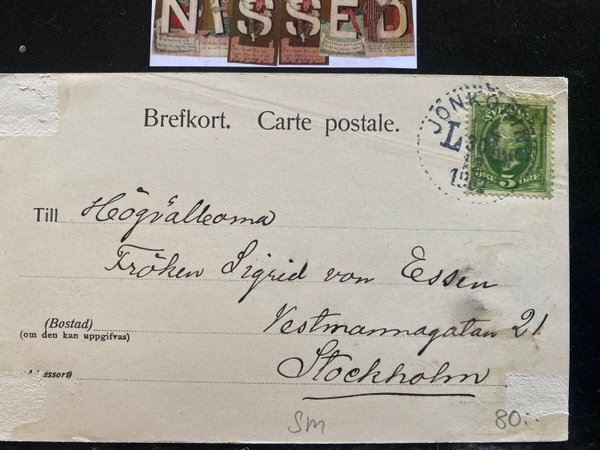 NISSED
Brefkort. Carte postale.
SVERIGE
5
ÖRE
Till Högvälborna
Fröken Sigrid von Essen
(Bostad)
(om den kan uppgifvas)
Vestmannagatan 21
Stockholm
SM
80:-